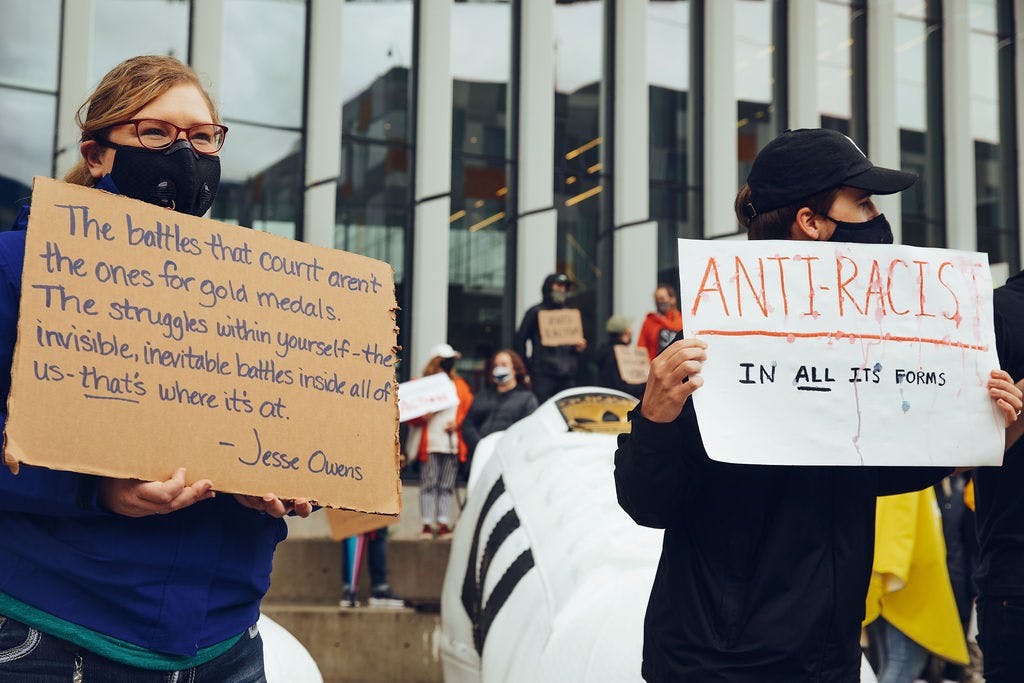 The battles that count aren't
the ones for gold medals.
The struggles within yourself-the
invisible, inevitable battles inside all of
us-that's where it's at.
-Jesse Owens
ANTI-RACIST
IN ALL ITS FORMS